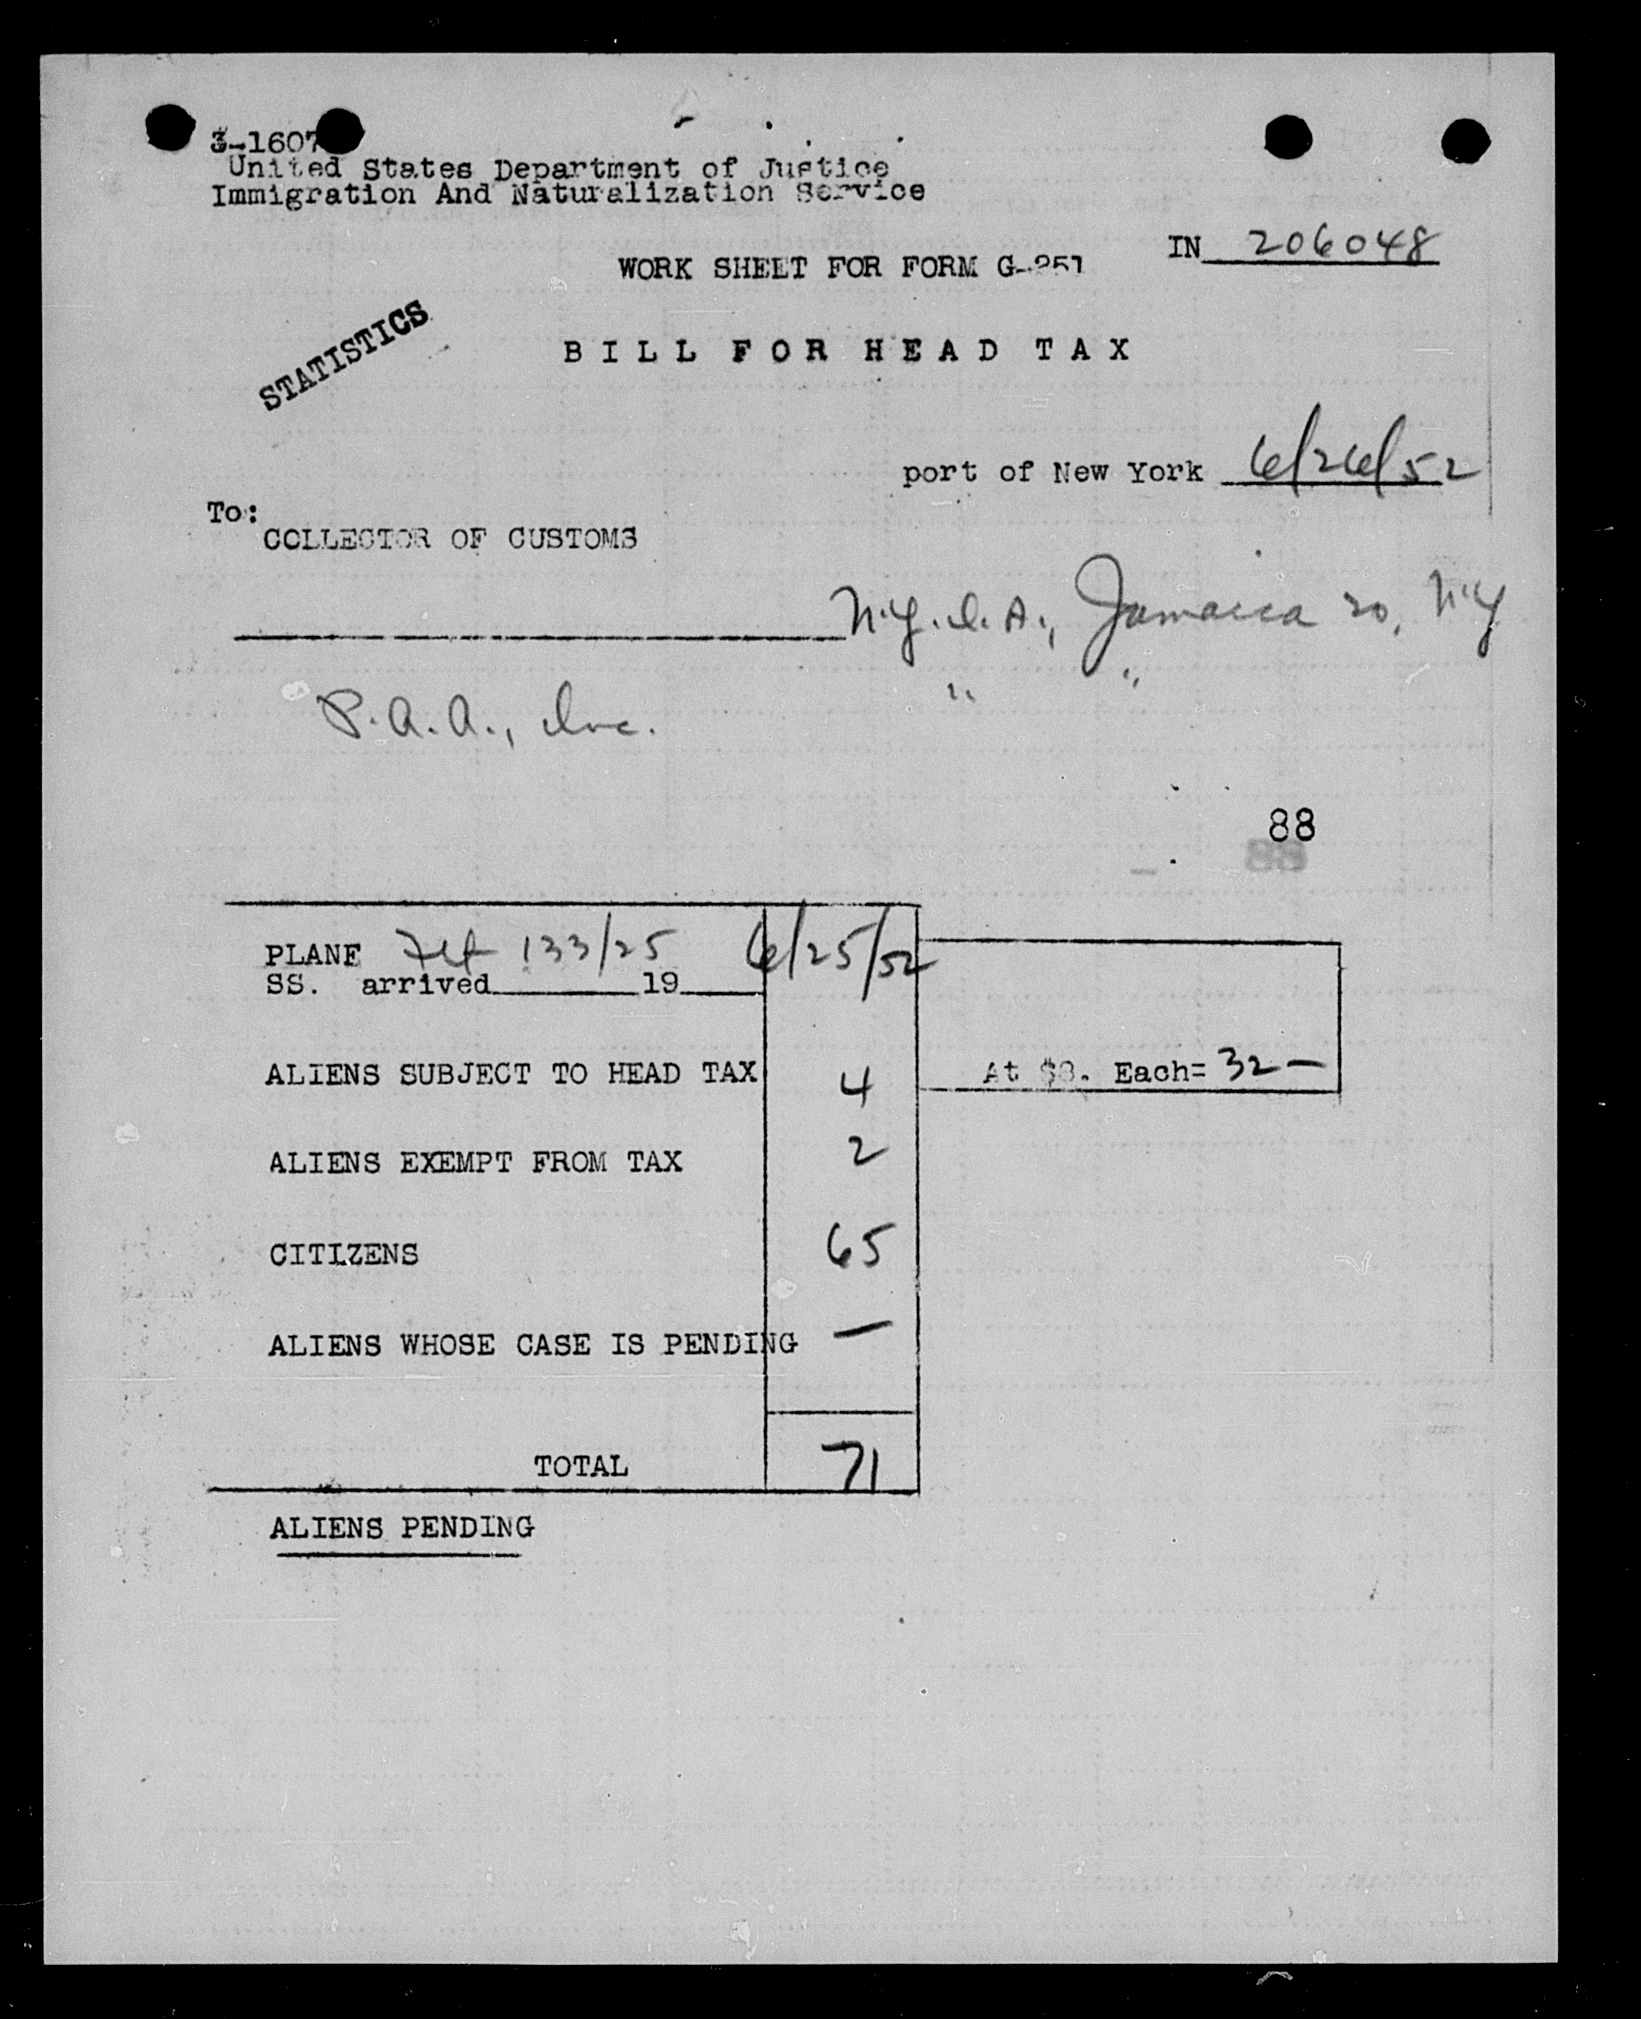 3-1607
United States Department of Justice
Immigration And Naturalization Service
IN 206048
WORK SHEET FOR FORM G-251
STATISTICS
BILL FOR HEAD TAX
port of New York 6/26/52
To:
COLLECTOR OF CUSTOMS
N.Y.I.A., Jamaica 30, N.Y
P.A.A., Inc. " "
88
PLANE Flt 133/25 6/25/52
SS. arrived 19
ALIENS SUBJECT TO HEAD TAX 4 At $8. Each= 32 —
ALIENS EXEMPT FROM TAX 2
CITIZENS 65
ALIENS WHOSE CASE IS PENDING —
TOTAL 71
ALIENS PENDING